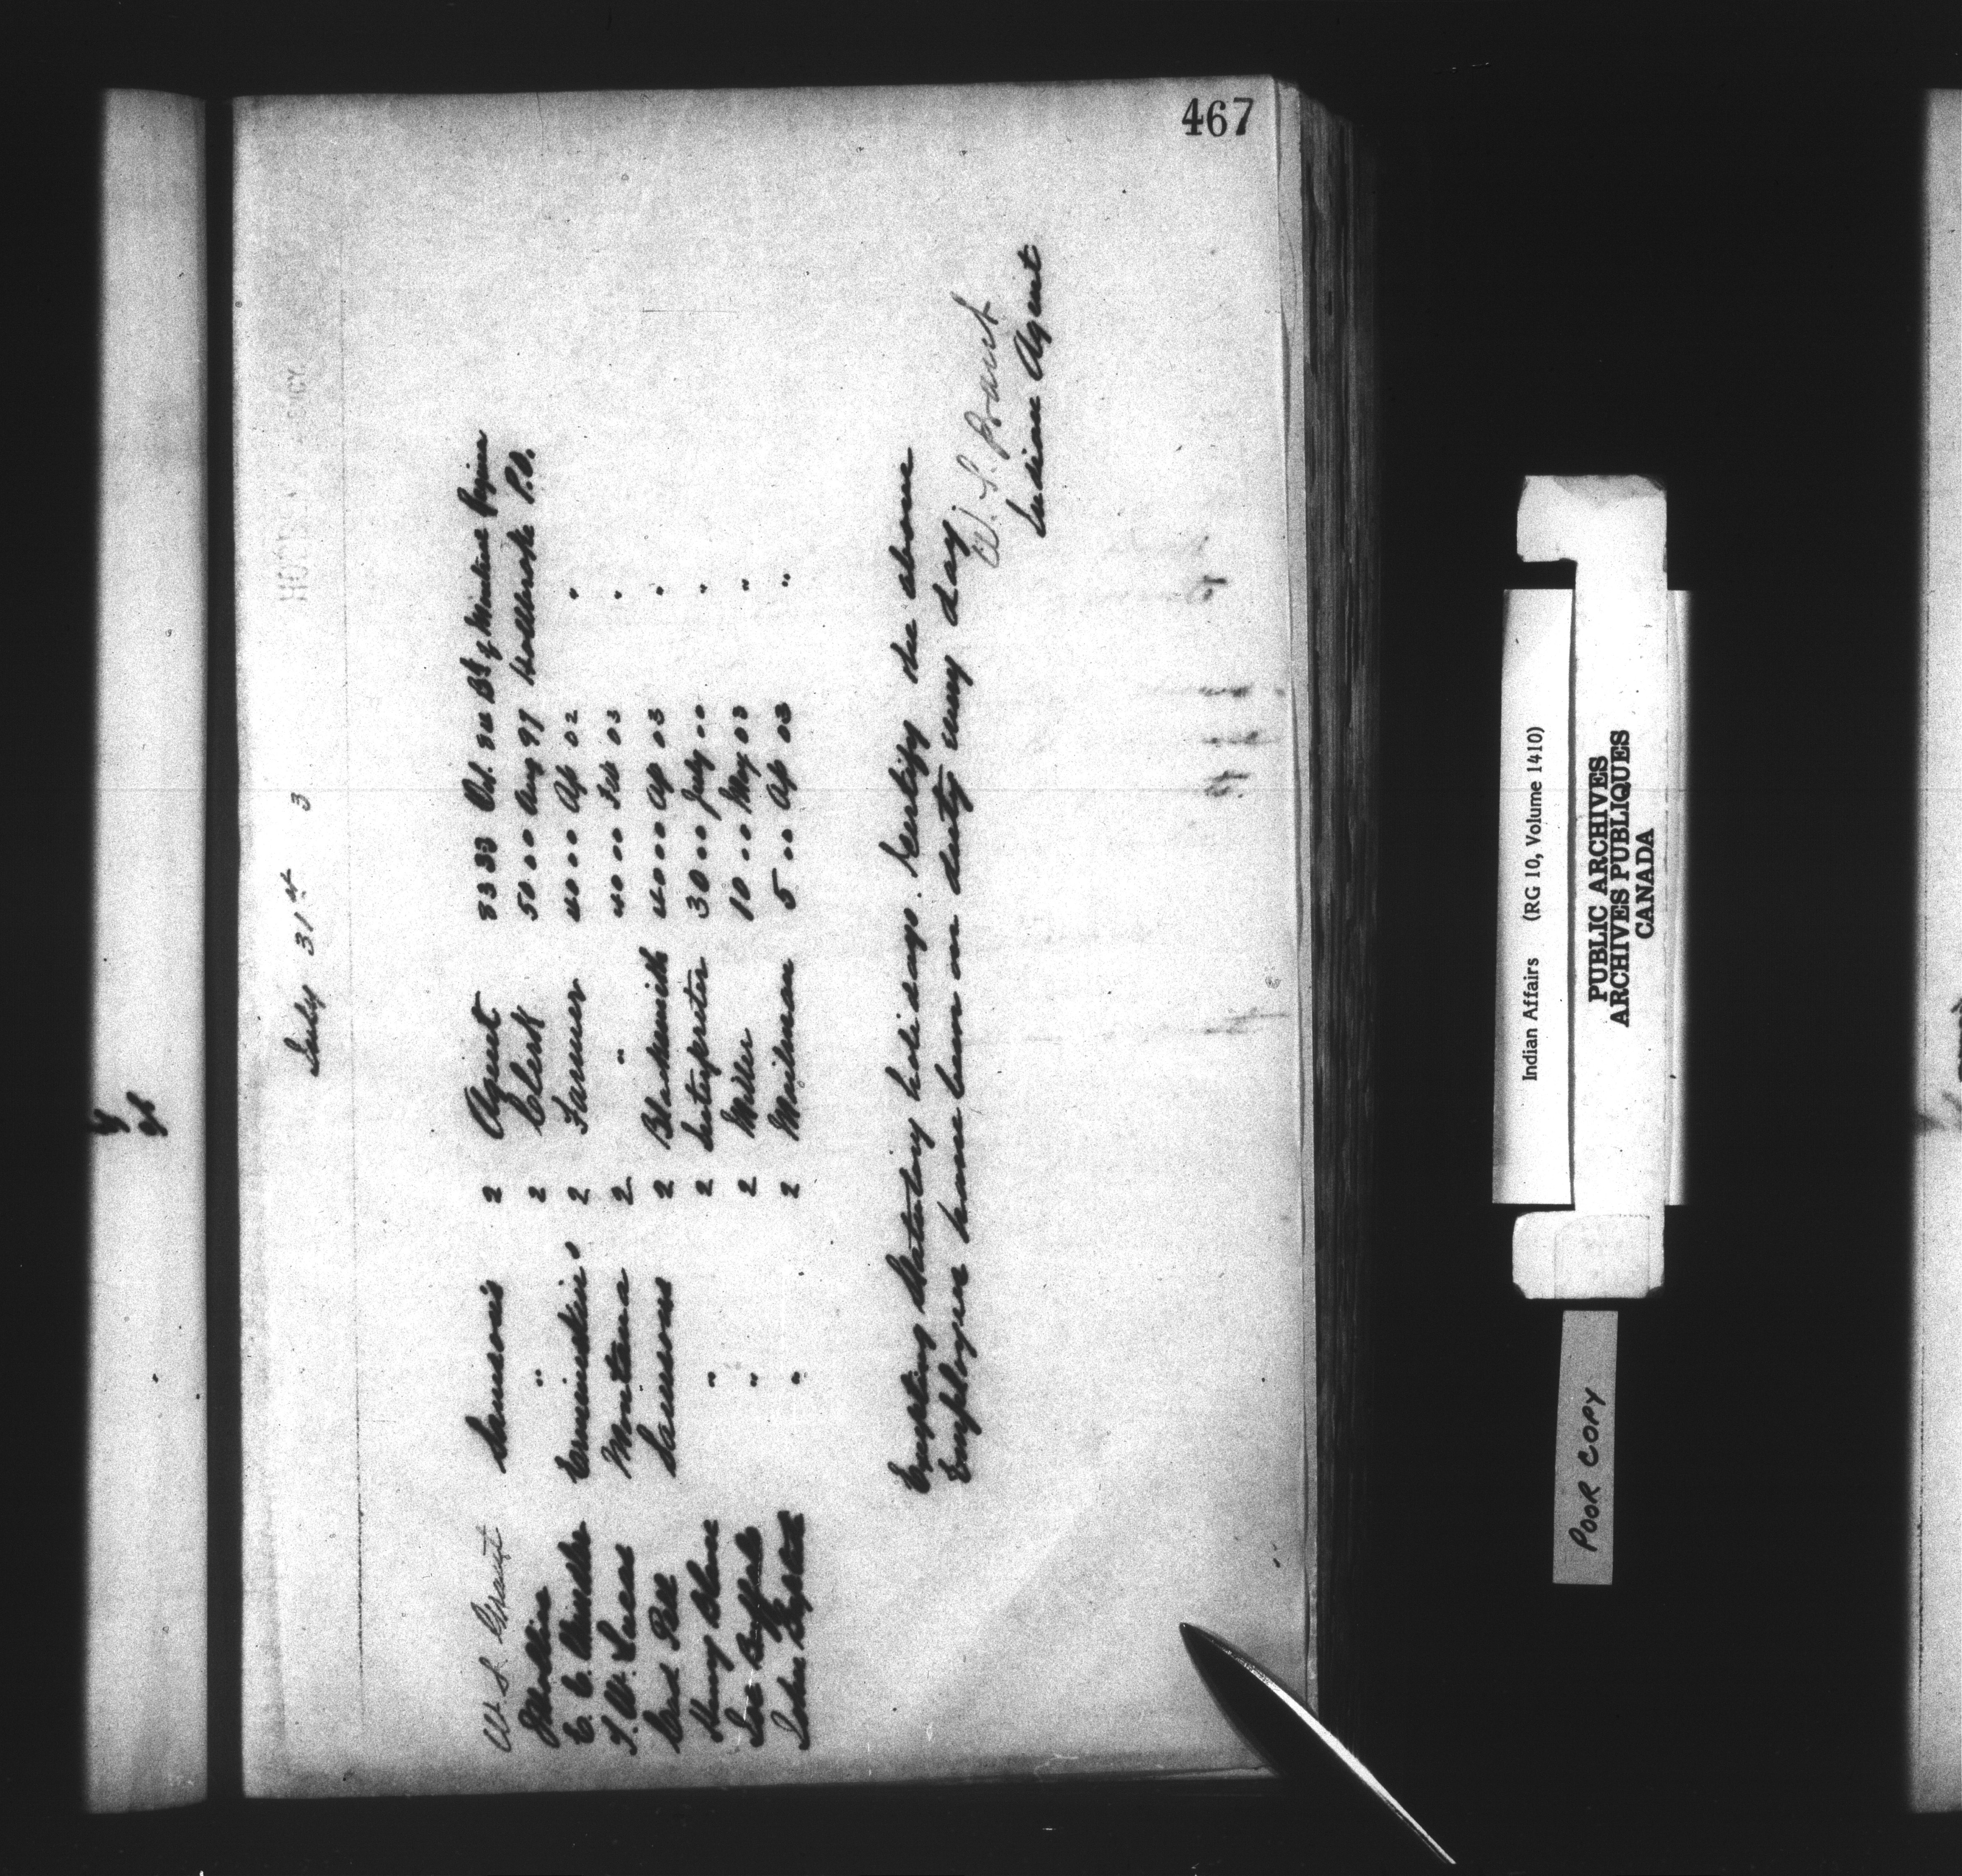 467
July 31st 3
W. S. Grant Samson's 2 Agent 83 33 Oct. Bk of Montreal Regina
" 2 Clerk 50 00 Aug 97 P.O.
Ermineskins 2 Farmer 40 00 Ap 02 "
T. W. Lucas Montana 2 " 40 00 Feb 03 "
Samsons 2 Blacksmith 40 00 Ap 03 "
Henry Blanc " 2 Interpreter 30 00 July 00 "
Joe Buffalo " 2 Miller 10 00 May 03 "
" 2 Mailman 5 00 Ap 03 "
Excepting Statutory holidays. Certify the above
Employees have been on duty every day.
W. S. Grant
Indian Agent
Indian Affairs (RG 10, Volume 1410)
PUBLIC ARCHIVES
ARCHIVES PUBLIQUES
CANADA
POOR COPY